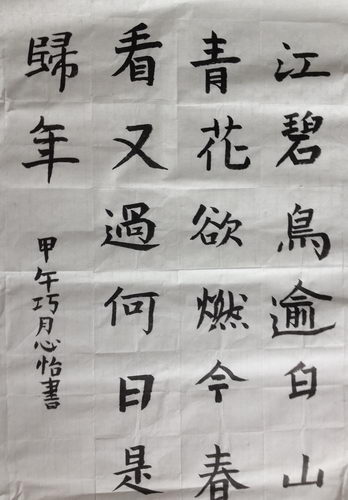 江碧鳥逾白山
青花欲燃今春
看又過何日是
歸年
甲午巧月心怡書